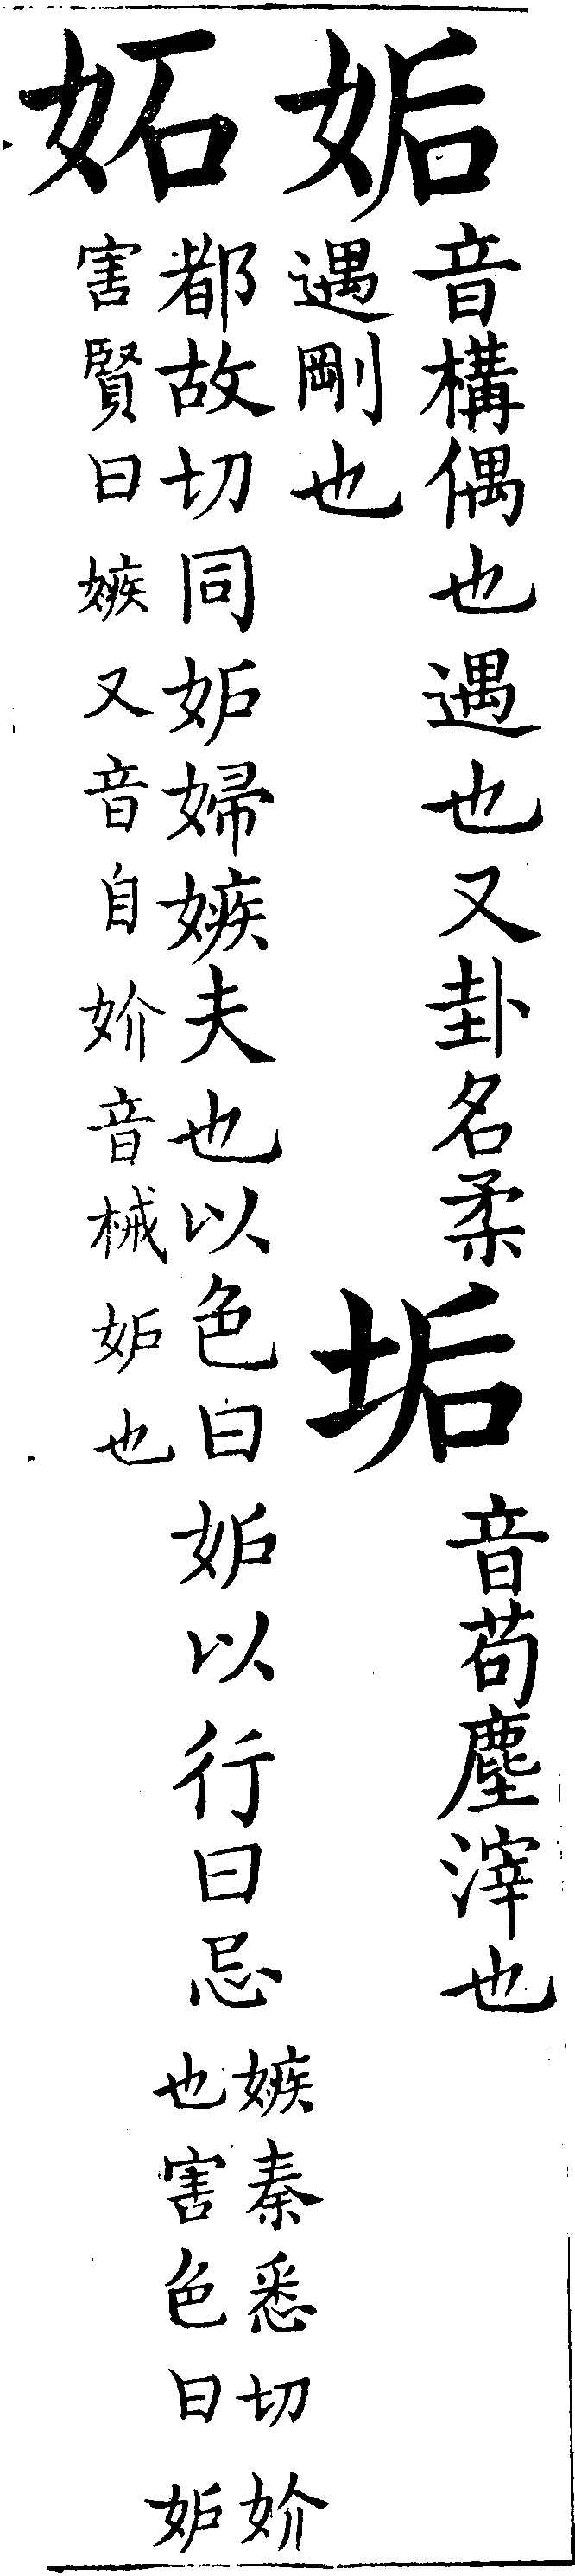 姤
音構偶也遇也又卦名柔
遇剛也
垢
音苟塵滓也
妬
都故切同妒婦嫉夫也以色曰妒以行曰忌
嫉秦悉切妎
也害色曰妒
害賢曰嫉又音自妎音械妒也